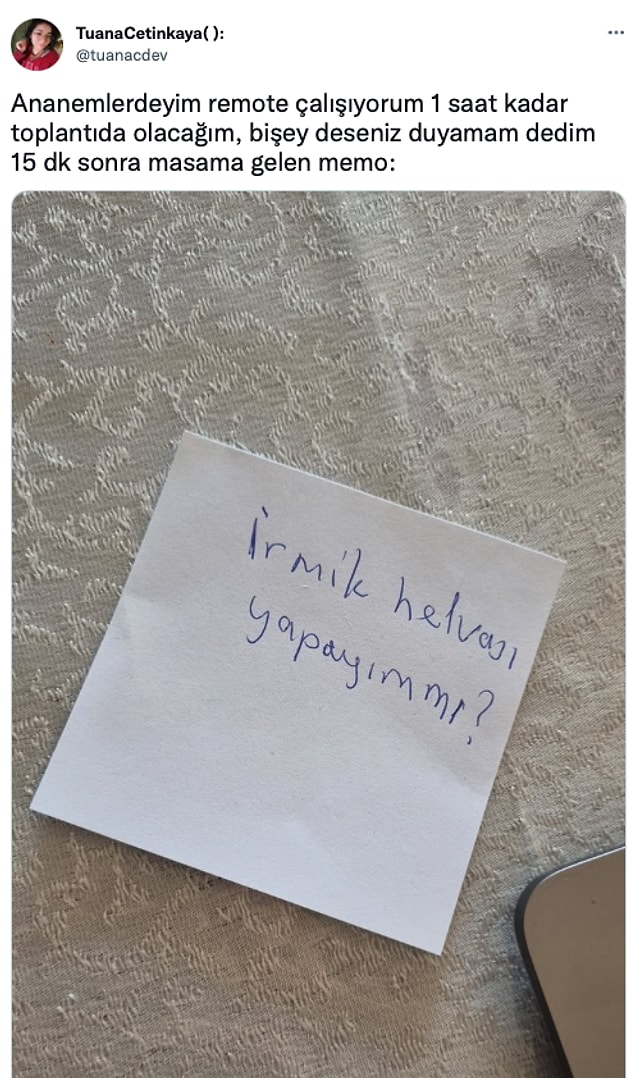 TuanaCetinkaya( ):
@tuanacdev
Ananemlerdeyim remote çalışıyorum 1 saat kadar
toplantıda olacağım, bişey deseniz duyamam dedim
15 dk sonra masama gelen memo:
İrmik helvası
yapayımmı?